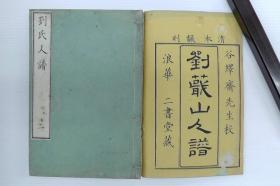 劉氏人譜
清本翻刻
谷繹齋先生校
劉蕺山人譜
浪華 二書堂藏